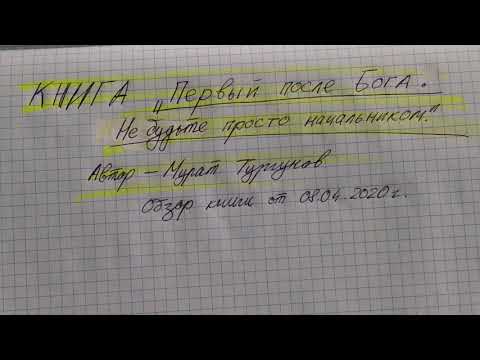 КНИГА „Первый после Бога.
Не будьте просто начальником."
Автор – Мурат Тургунов.
Обзор книги от 09.04.2020г.